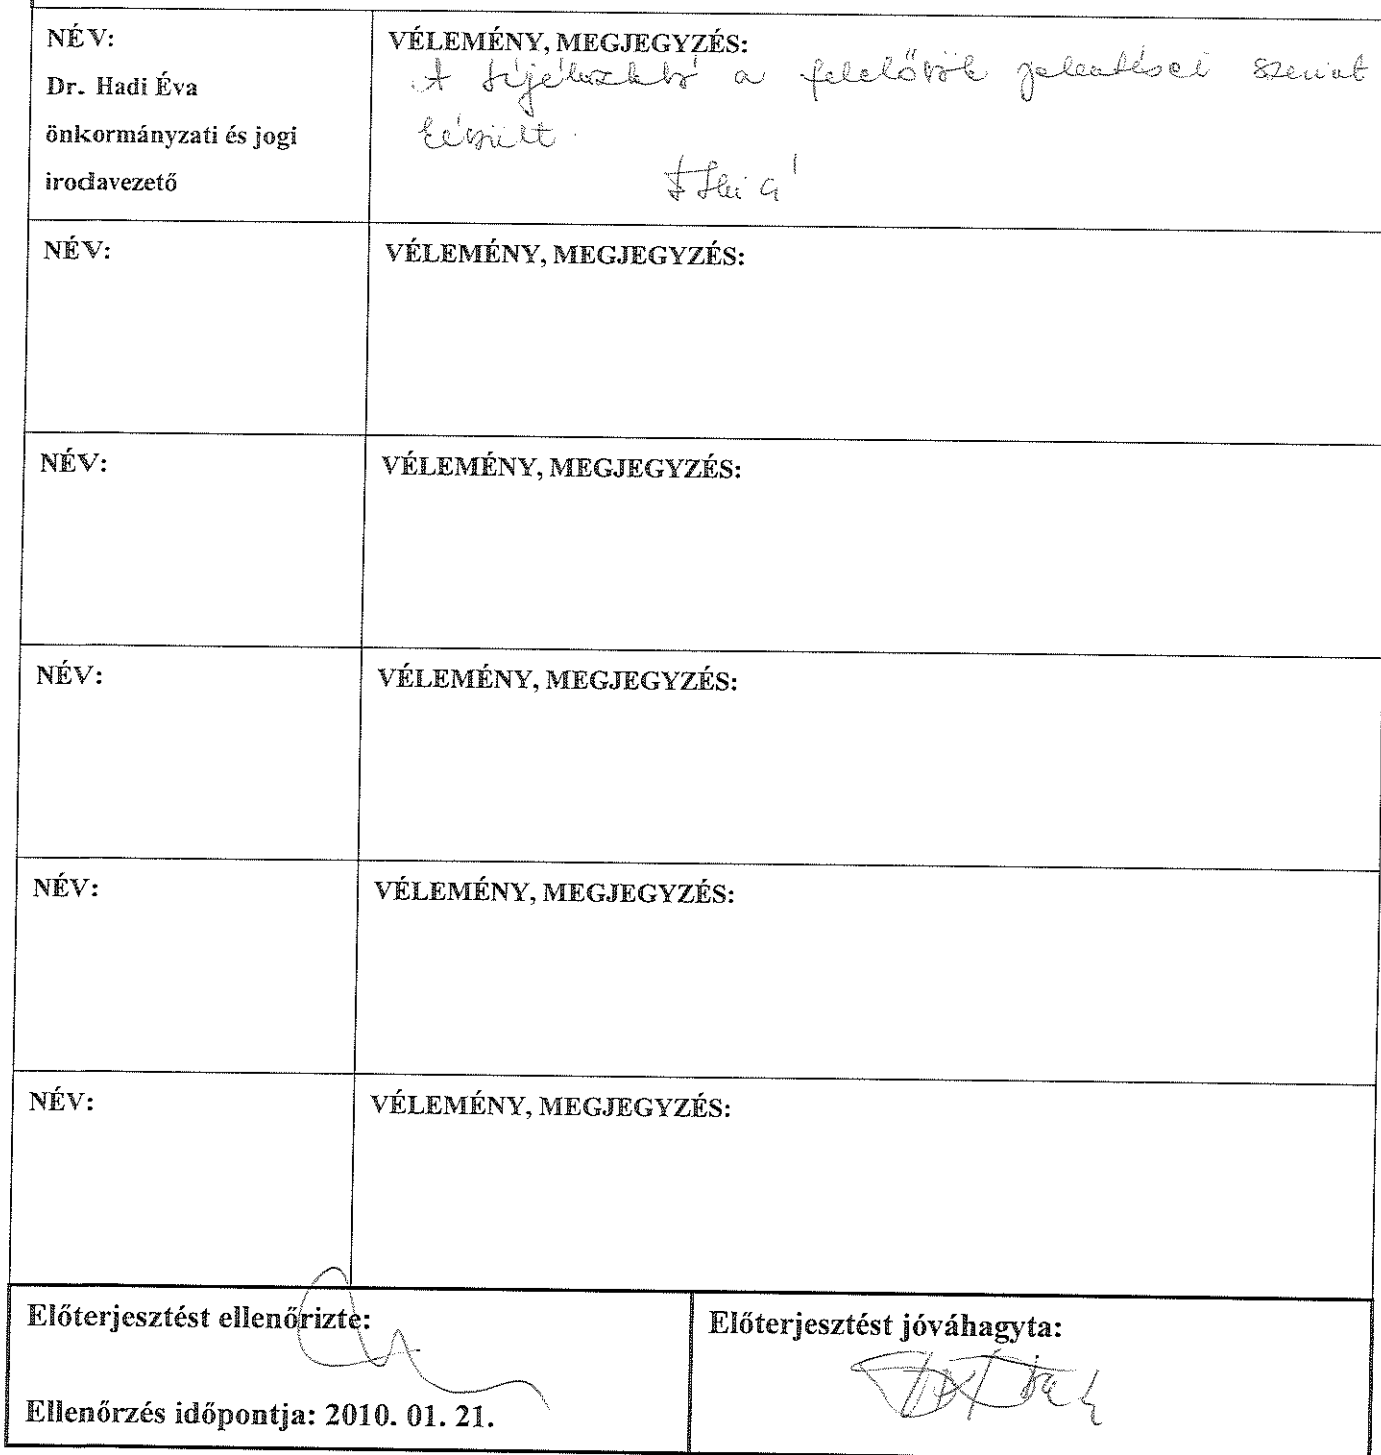 NÉV:
Dr. Hadi Éva
önkormányzati és jogi
irodavezető
VÉLEMÉNY, MEGJEGYZÉS:
A tájékoztató a felelősök jelentései szerint
készült.
NÉV:
VÉLEMÉNY, MEGJEGYZÉS:
NÉV:
VÉLEMÉNY, MEGJEGYZÉS:
NÉV:
VÉLEMÉNY, MEGJEGYZÉS:
NÉV:
VÉLEMÉNY, MEGJEGYZÉS:
NÉV:
VÉLEMÉNY, MEGJEGYZÉS:
Előterjesztést ellenőrizte:
Ellenőrzés időpontja: 2010. 01. 21.
Előterjesztést jóváhagyta: